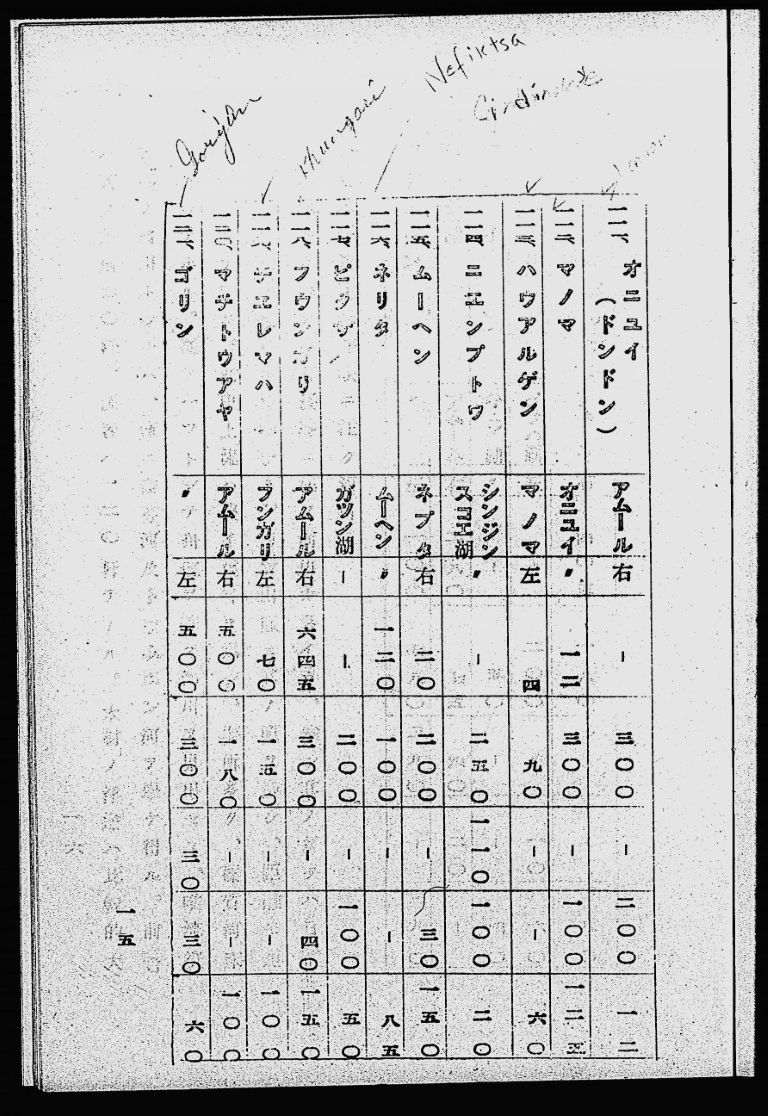 Khungari
Nefiktsa
一一一、オニユイ
(ドンドン) アムール 右 ー 三〇〇 ー 二〇〇 一二
一一二、マノマ オニユイ 〃 一二 三〇〇 ー 一〇〇 一二五
一一三、ハウアルゲン マノマ 左 四 九〇 ー ー 六〇
一一四、ニエンプトワ シンジン
スコエ湖 〃 ー 二五〇 一一〇 一〇〇 二〇
一一五、ムーヘン ネプタ 右 二〇 二〇〇 ー 三〇 一五〇
一一六、ネリタ ムーヘン 〃 一二〇 一〇〇 ー ー 八五
一一七、ビクザ ガツン湖 ー ー 二〇〇 ー 一〇〇 五〇
一一八、フウンガリ アムール 右 六四五 三〇〇 ー 四〇 一五〇
一一九、チエレマハ フンガリ 左 七〇 一五〇 ー ー 一〇〇
一二〇、マチトウアヤ アムール 右 五〇〇 一八〇 ー ー 一〇〇
一二一、ゴリン 〃 左 五〇〇 三〇〇 三〇 三〇 六〇
一五